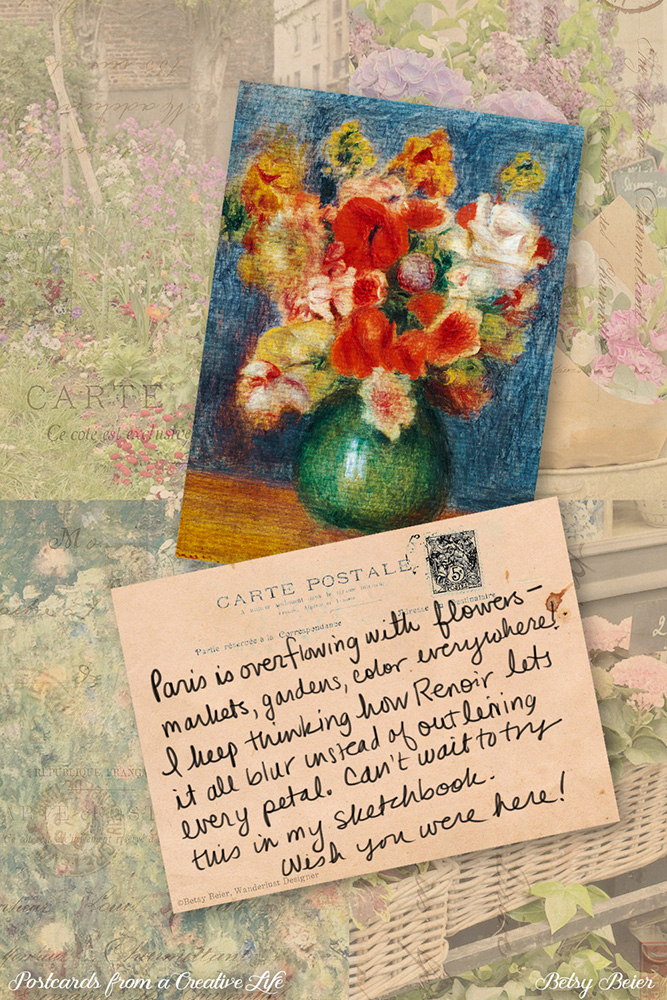 CARTE
Ce coté est exclusive
CARTE POSTALE
5
Partie réservée à la Correspondance
Adresse du Destinataire
Paris is overflowing with flowers—
markets, gardens, color everywhere!
I keep thinking how Renoir lets
it all blur instead of outlining
every petal. Can't wait to try
this in my sketchbook.
Wish you were here!
©Betsy Beier, Wanderlust Designer
Postcards from a Creative Life
Betsy Beier